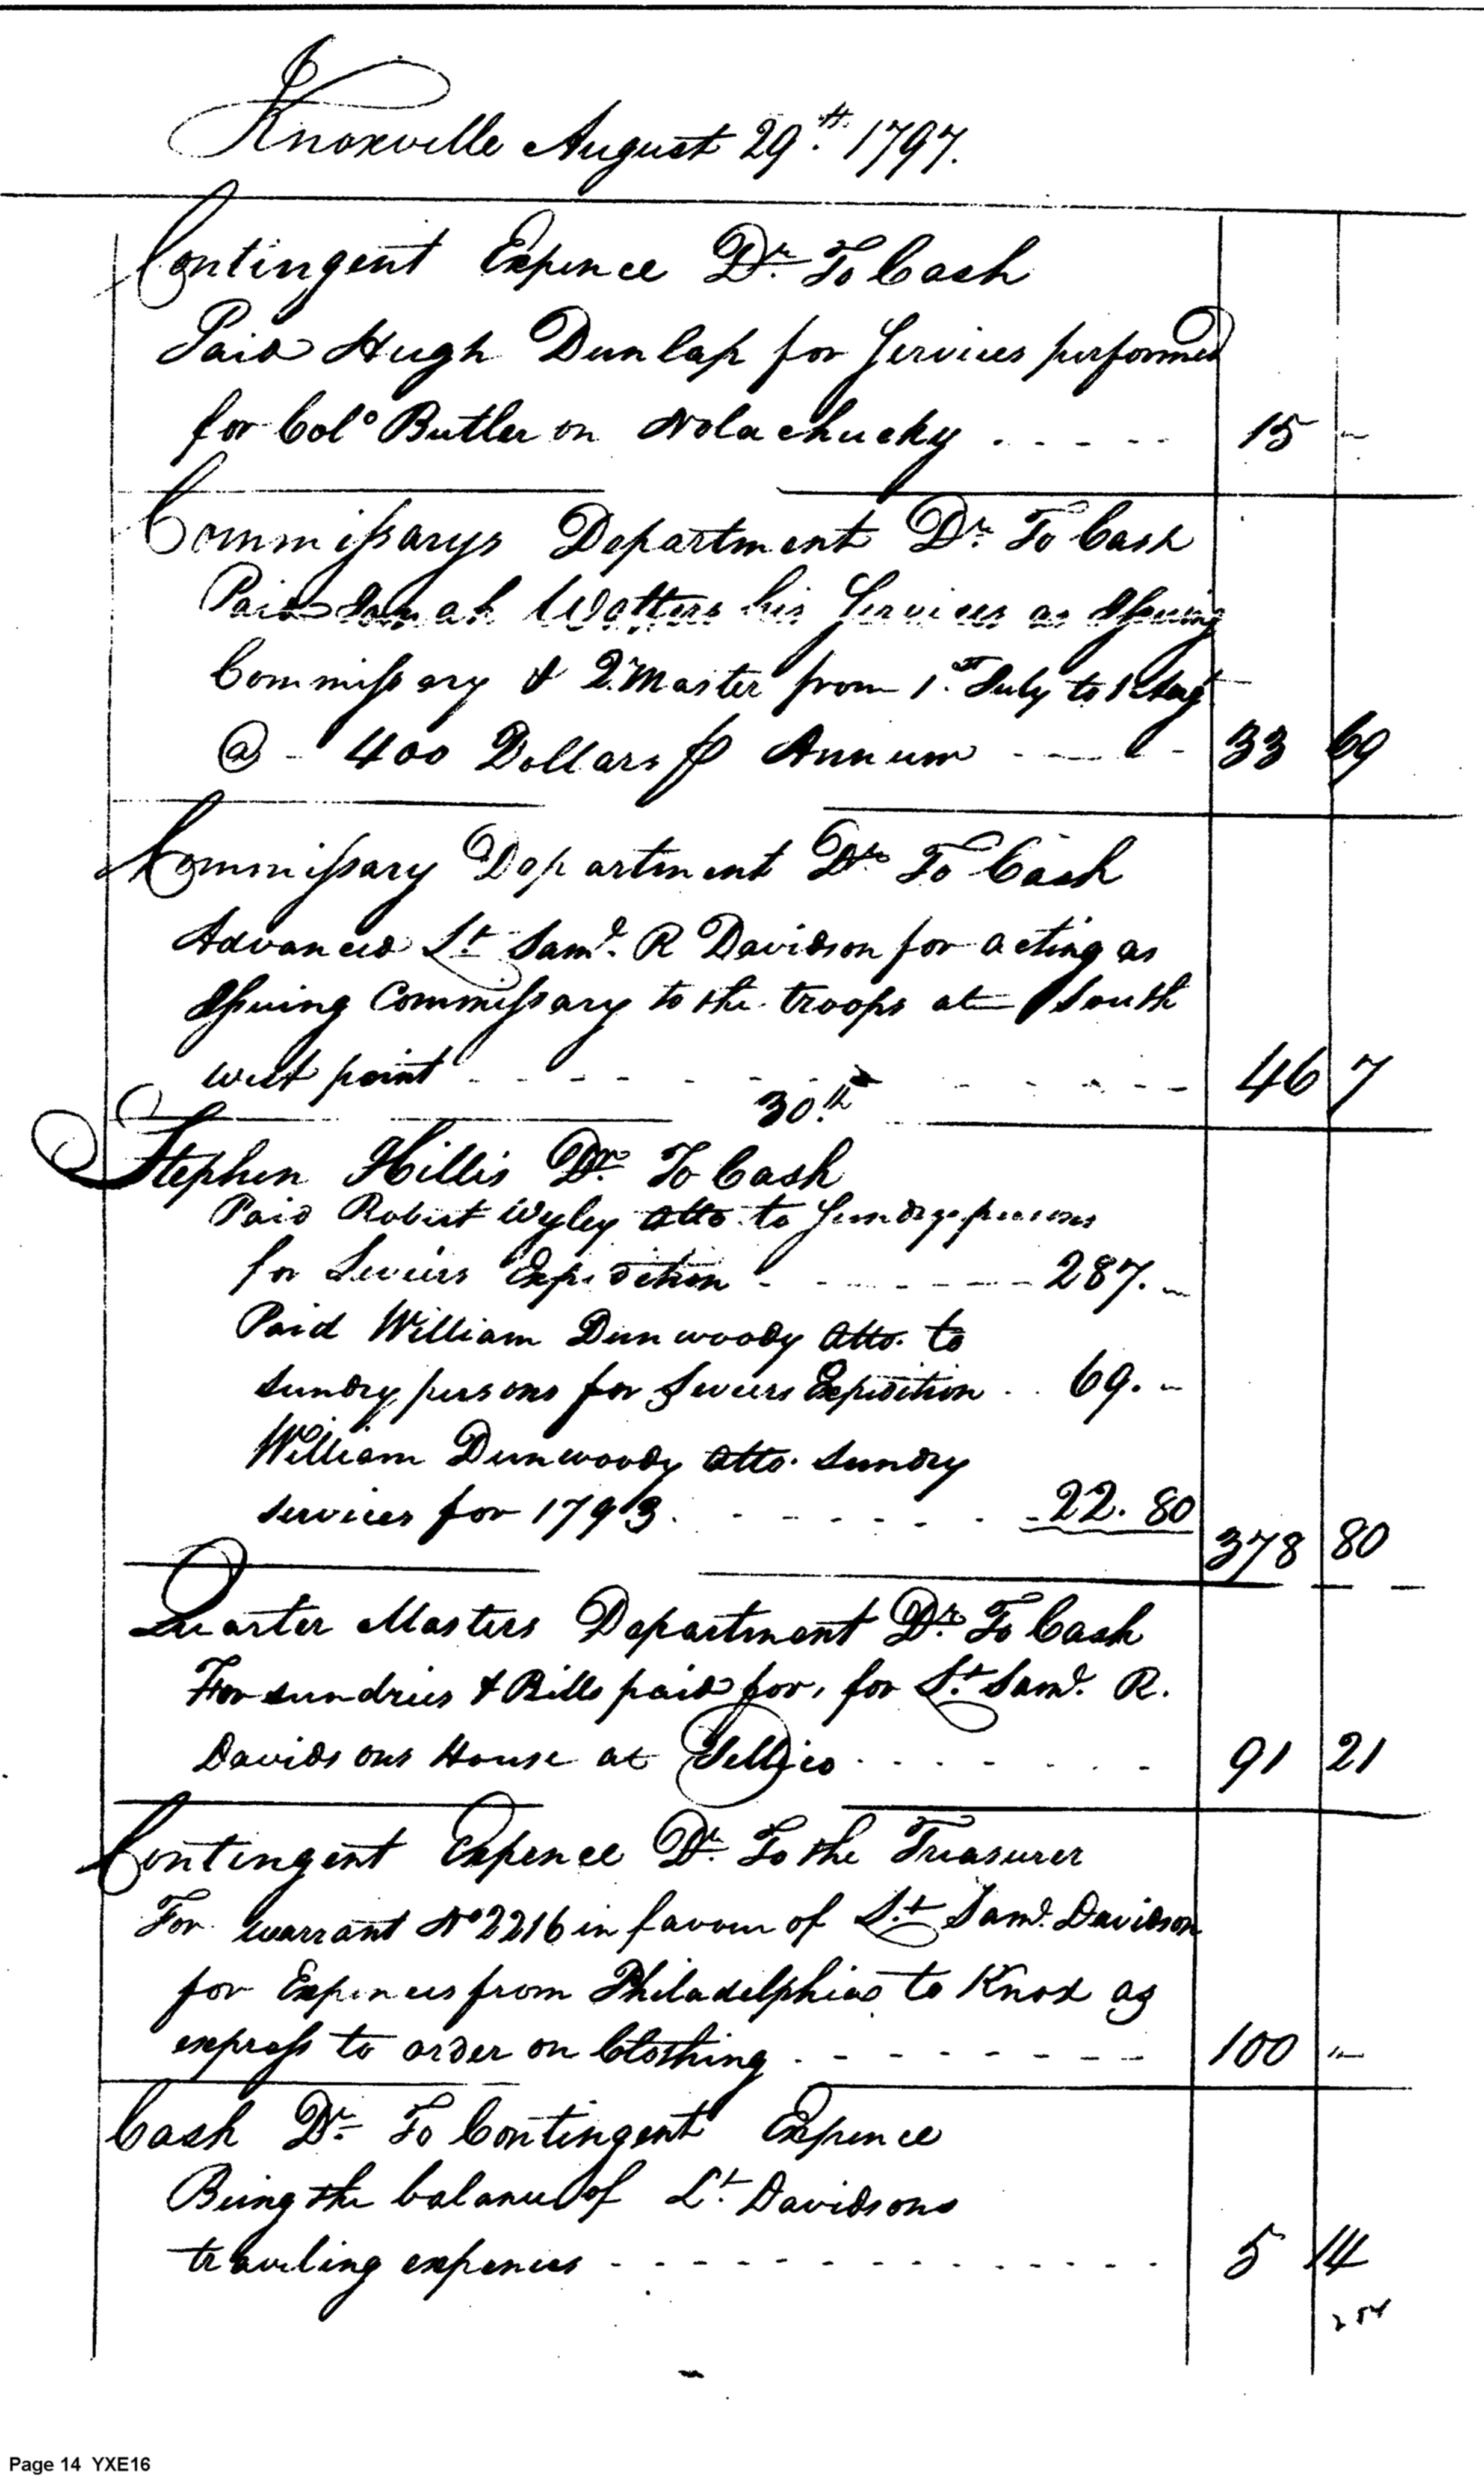 Knoxville August 29th. 1797.
Contingent Expence Dr. To Cash
Paid Hugh Dunlap for Services performed
for Colo Butler on Nolachucky . . . . . 15 –
Commissarys Department Dr. To Cash
Paid Watters his Services as Issuing
Commissary & Qr. Master from 1st July to Augt
@ - 400 Dollars ⅌ Annum - - - - 33 69
Commissary Department Dr. To Cash
Advanced Lt. Saml. R Davidson for acting as
Issuing Commissary to the troops at South
west point - - - - - - - - - 46 7
30th.
Stephen Hillis Dr. To Cash
Paid Robert Wyley Atto. to Sundry persons
for Seveirs Expedition - - - - - - 287. –
Paid William Dunwoody Atto. to
sundry persons for Seveers Expedition . . 69. –
William Dunwoody Atto. sundry
services for 1793 . - - - - - - 22. 80
378 80
Quarter Masters Department Dr. To Cash
For sundries & Bills paid for, for Lt. Saml. R.
Davidsons House at Tellico . . - - . . - 91 21
Contingent Expence Dr. To the Treasurer
For warrant No 2216 in favour of Lt. Saml. Davidson
for Expences from Philadelphia to Knox as
express to order on Clothing . - - - - - - - 100 –
Cash Dr. To Contingent Expence
Being the balance of Lt. Davidsons
traveling expences - - - - - - - - - - - 5 14
Page 14 YXE16